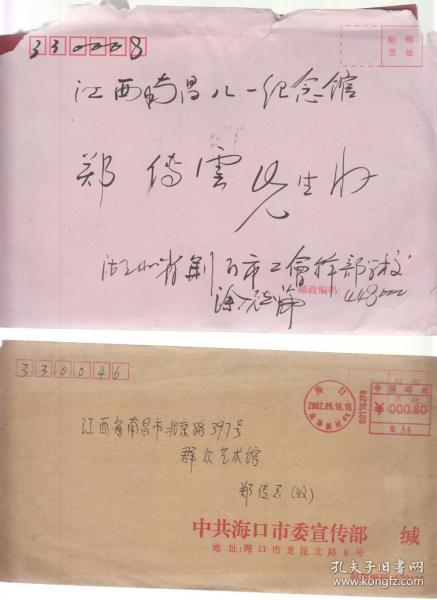 330008
贴邮
票处
江西南昌八一纪念馆
郑传雲先生收
湖北省荆门市工會幹部学校
邮政编码: 448000
330046
海口
2002.09.16.15
中国邮政
000.80
江西省南昌市北京路397号
群众艺术馆
郑传云(收)
中共海口市委宣传部 缄
地址:海口市龙昆北路8号
孔夫子旧书网